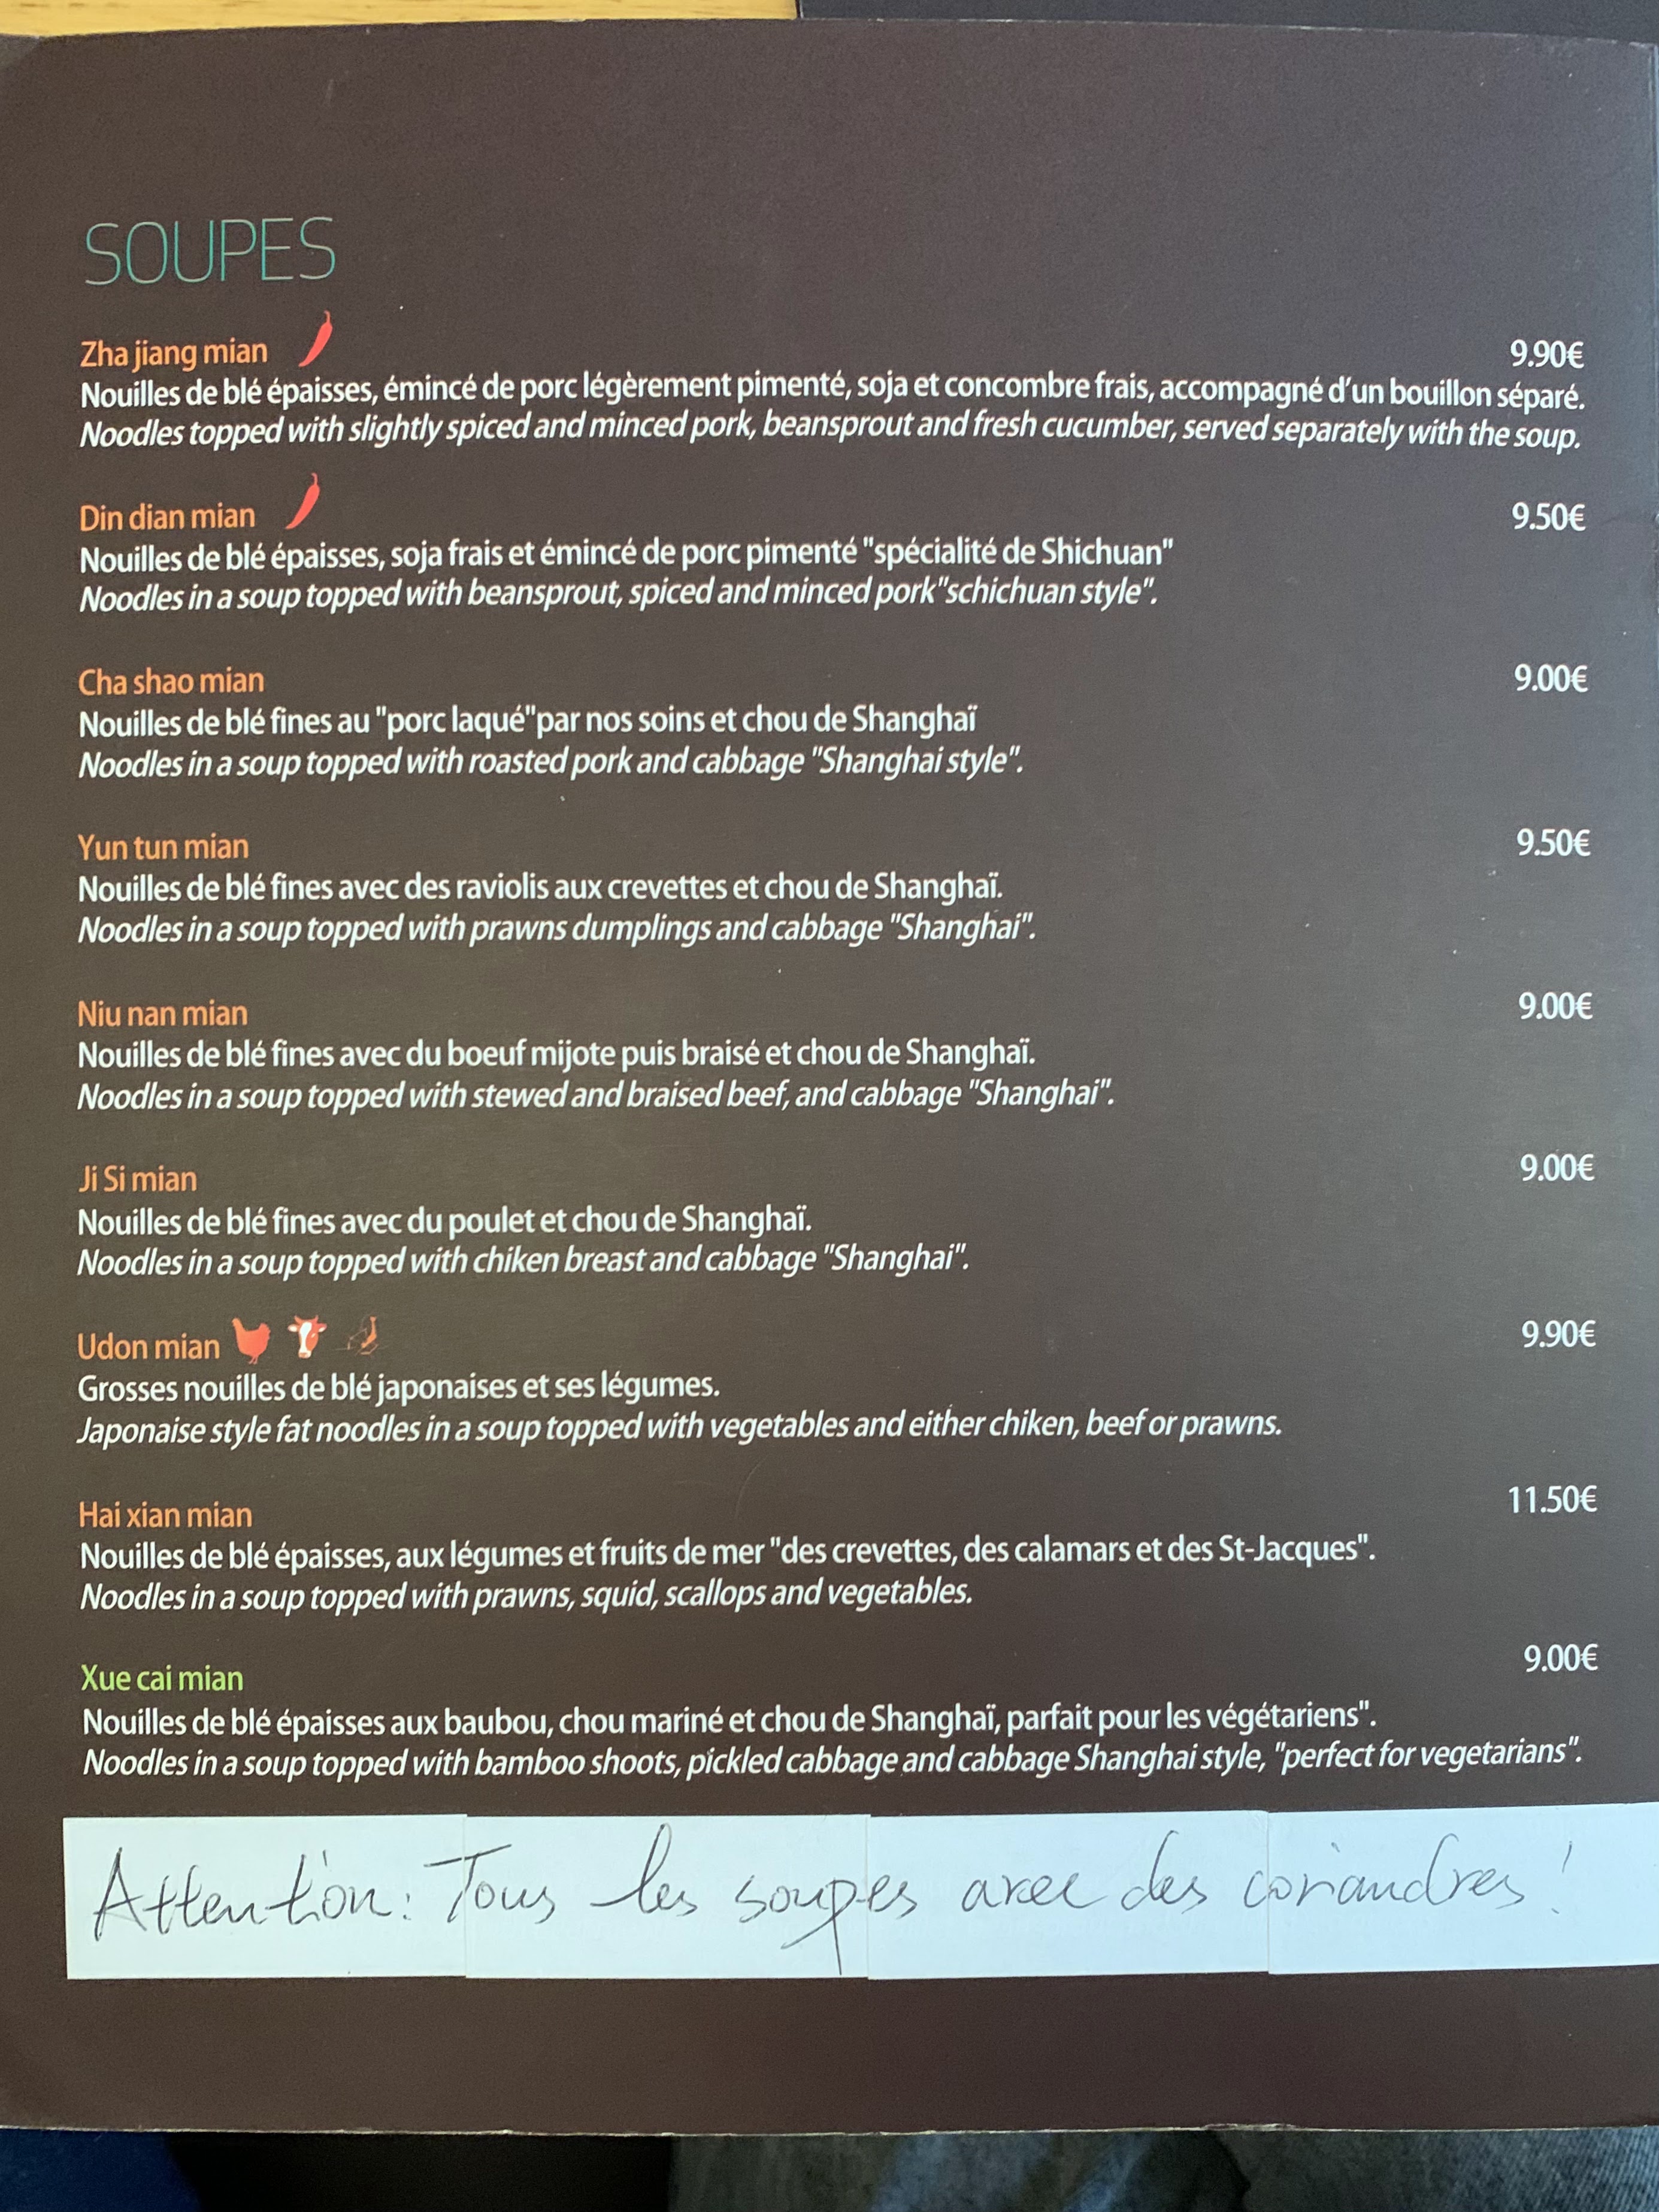 SOUPES
Zha jiang mian 9.90€
Nouilles de blé épaisses, émincé de porc légèrement pimenté, soja et concombre frais, accompagné d'un bouillon séparé.
Noodles topped with slightly spiced and minced pork, beansprout and fresh cucumber, served separately with the soup.
Din dian mian 9.50€
Nouilles de blé épaisses, soja frais et émincé de porc pimenté "spécialité de Shichuan"
Noodles in a soup topped with beansprout, spiced and minced pork"schichuan style".
Cha shao mian 9.00€
Nouilles de blé fines au "porc laqué"par nos soins et chou de Shanghaï
Noodles in a soup topped with roasted pork and cabbage "Shanghai style".
Yun tun mian 9.50€
Nouilles de blé fines avec des raviolis aux crevettes et chou de Shanghaï.
Noodles in a soup topped with prawns dumplings and cabbage "Shanghai".
Niu nan mian 9.00€
Nouilles de blé fines avec du boeuf mijote puis braisé et chou de Shanghaï.
Noodles in a soup topped with stewed and braised beef, and cabbage "Shanghai".
Ji Si mian 9.00€
Nouilles de blé fines avec du poulet et chou de Shanghaï.
Noodles in a soup topped with chiken breast and cabbage "Shanghai".
Udon mian 9.90€
Grosses nouilles de blé japonaises et ses légumes.
Japonaise style fat noodles in a soup topped with vegetables and either chiken, beef or prawns.
Hai xian mian 11.50€
Nouilles de blé épaisses, aux légumes et fruits de mer "des crevettes, des calamars et des St-Jacques".
Noodles in a soup topped with prawns, squid, scallops and vegetables.
Xue cai mian 9.00€
Nouilles de blé épaisses aux baubou, chou mariné et chou de Shanghaï, parfait pour les végétariens".
Noodles in a soup topped with bamboo shoots, pickled cabbage and cabbage Shanghai style, "perfect for vegetarians".
Attention: Tous les soupes avec des coriandres!